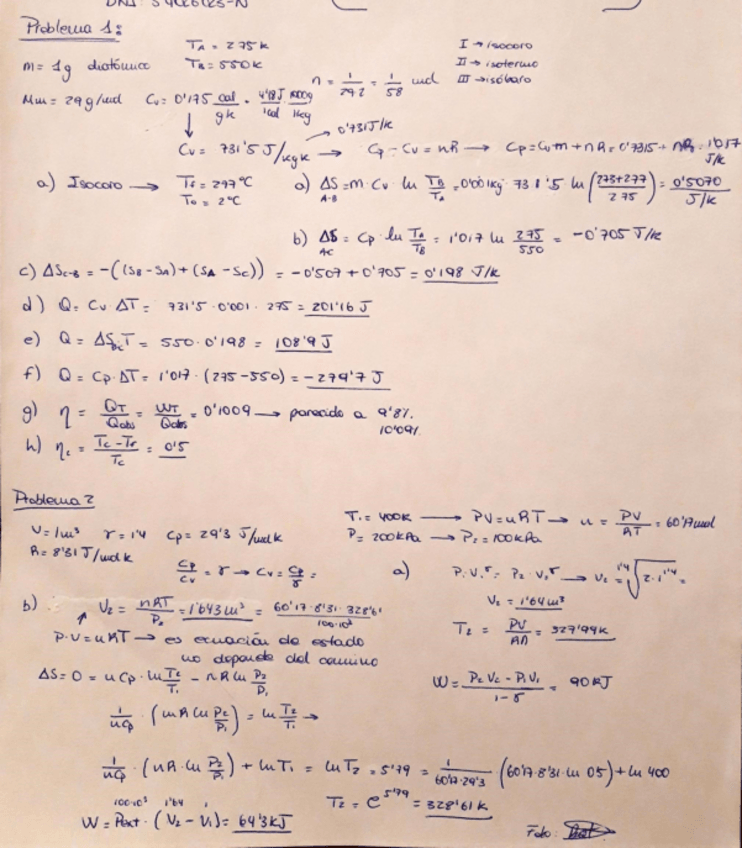 Problema 1:
m = 1g diatómico
TA = 275 k
TB = 550 k
n = 1/29.2 = 1/58 mol
I → isocoro
II → isotermo
III → isóbaro
Mm = 29 g/mol Cv = 0'175 cal/gk · 4'18J/1cal · 1000g/1kg
Cv = 731'5 J/kgk → 0'731J/k → Cp - Cv = nR → Cp = Cv m + nR = 0'7315 + nR = 1'017 J/k
a) Isocoro → Tf = 277 °C
To = 2 °C
a) ΔS A-B = m · Cv · ln TB/TA = 0'001kg · 731'5 · ln (273+277/275) = 0'5070 J/k
b) ΔS AC = Cp · ln TA/TB = 1'017 ln 275/550 = -0'705 J/k
c) ΔSC-B = -((SB - SA) + (SA - SC)) = -0'507 + 0'705 = 0'198 J/k
d) Q = Cv · ΔT = 731'5 · 0'001 · 275 = 201'16 J
e) Q = ΔSBC T = 550 · 0'198 = 108'9 J
f) Q = Cp · ΔT = 1'017 · (275 - 550) = -279'7 J
g) η = QT/Qabs = WT/Qabs = 0'1009 → parecido a 9'8%
10'09%
h) ηc = Tc - Tf/Tc = 0'5
Problema 2
V = 1m³ γ = 1'4 Cp = 29'3 J/molk
R = 8'31 J/molk
T1 = 400k → PV = nRT → n = PV/RT = 60'17 mol
P = 200kPa → P2 = 100kPa
Cp/Cv = γ → Cv = Cp/γ =
a) P1V1^γ = P2 · V2^γ → V2 = 1'4√2·1^1'4 =
V2 = 1'64 m³
b) V2 = nRT/P2 = 1'643 m³ = 60'17 · 8'31 · 328'61/100·10³
T2 = PV/Rn = 327'94k
P·V = nRT → es ecuación de estado
no depende del camino
ΔS = 0 = n Cp · ln T2/T1 - nR ln P2/P1
W = P2V2 - P1V1/1-γ = 90 kJ
1/nCp · (nR ln P2/P1) = ln T2/T1 →
1/nCp · (nR · ln P2/P1) + ln T1 = ln T2 = 5'79 = 1/60'17·29'3 (60'17·8'31·ln 0'5) + ln 400
T2 = e^5'79 = 328'61 k
100·10³ 1'64 1
W = Pext · (V2 - V1) = 64'3 kJ
Fdo: